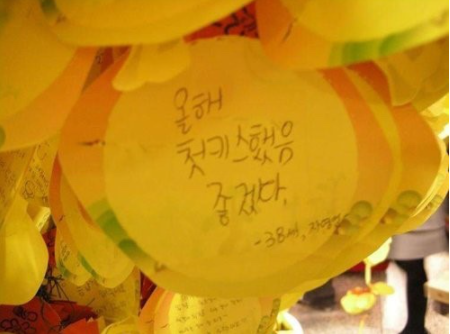 올해
첫키스했음
좋겠다.
-38세,